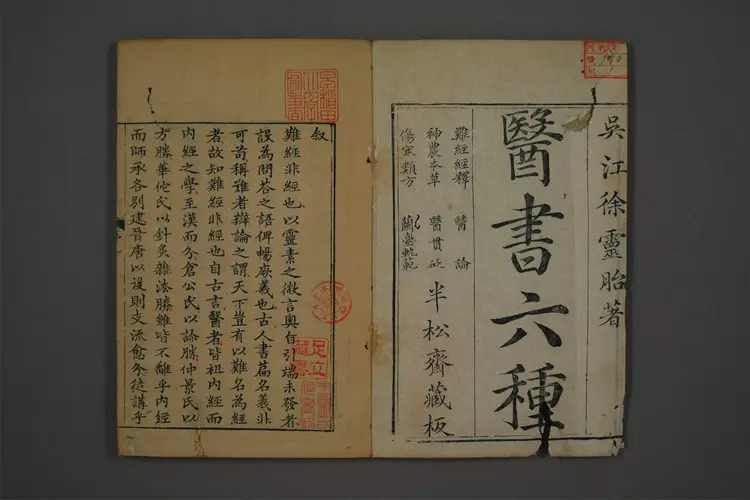 吳江徐靈胎著
醫書六種
難經經釋 醫論
神農本草 醫貫砭
傷寒類方 蘭臺軌範
半松齋藏板
叙
難經非經也以靈素之微言奧旨引端未發者
設為問答之語俾暢厥義也古人書篇名義非
可苟稱難者辯論之謂天下豈有以難名為經
者故知難經非經也自古言醫者皆祖內經而
內經之學至漢而分倉公氏以診勝仲景氏以
方勝華佗氏以針灸雜法勝雖皆不離乎內經
而師承各別逮晉唐以後則支流愈分徒講乎